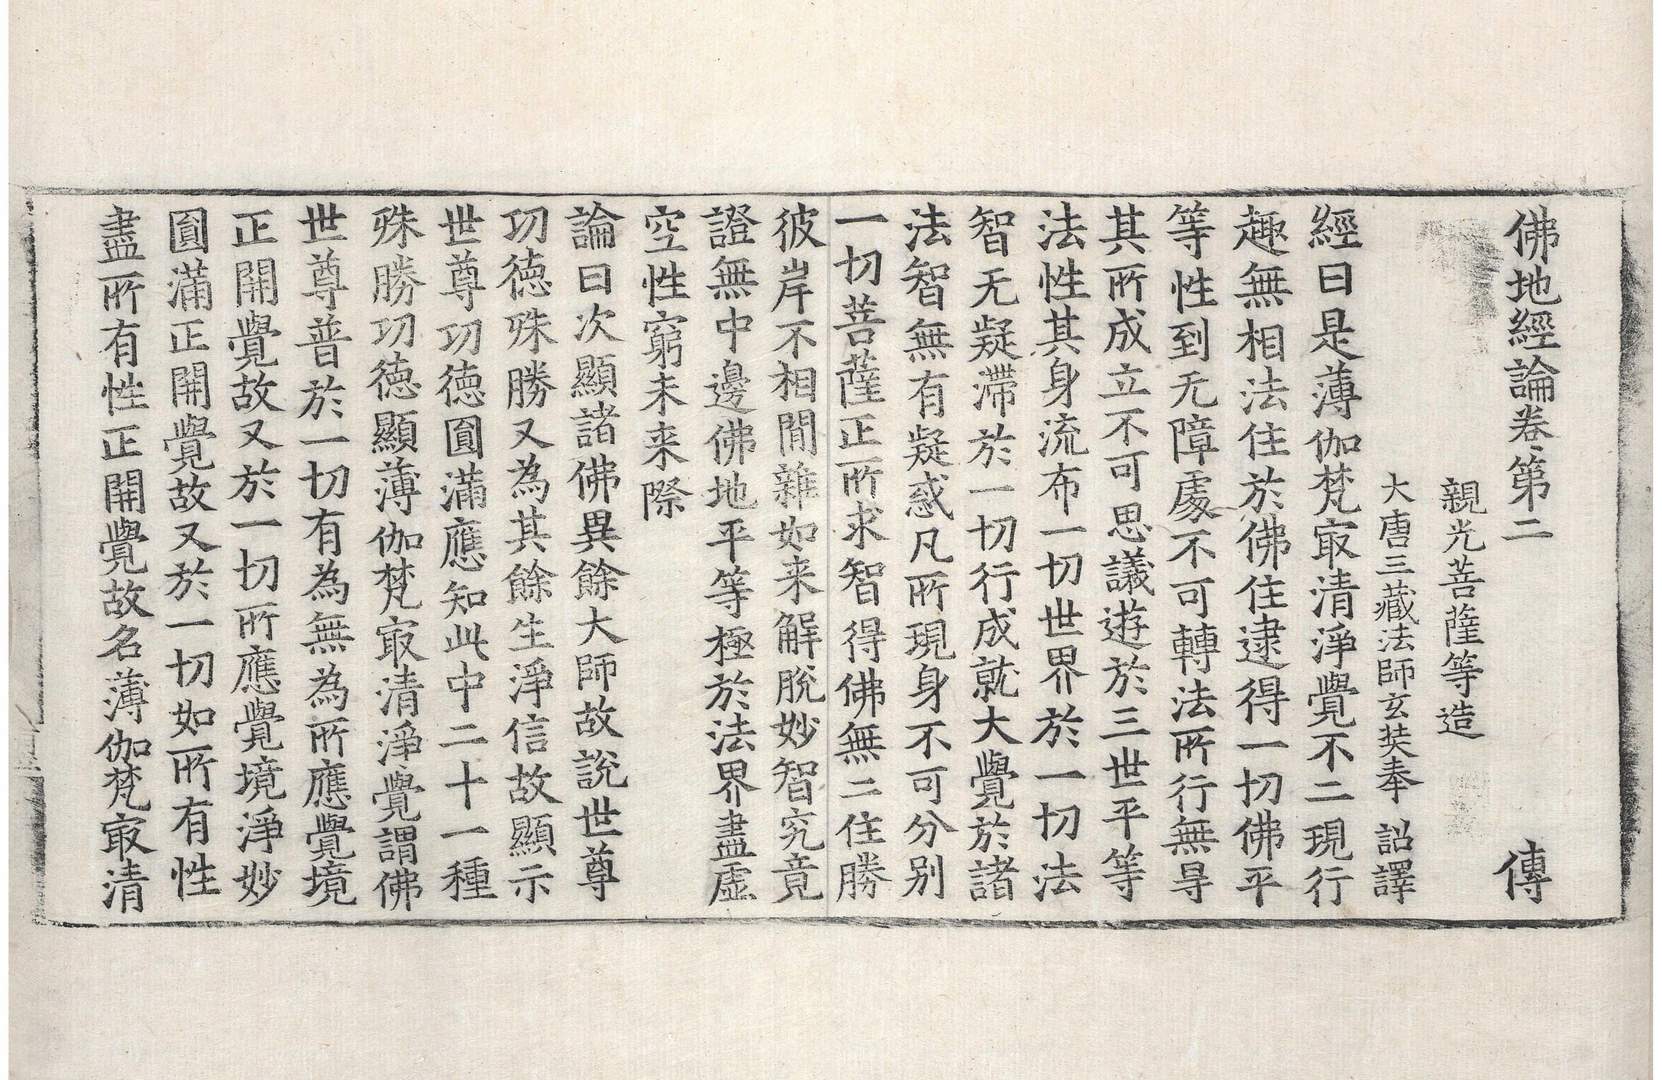 佛地經論卷第二 傳
親光菩薩等造
大唐三藏法師玄奘奉 詔譯
經曰是薄伽梵㝡清淨覺不二現行
趣無相法住於佛住逮得一切佛平
等性到无障處不可轉法所行無㝵
其所成立不可思議遊於三世平等
法性其身流布一切世界於一切法
智无疑滯於一切行成就大覺於諸
法智無有疑惑凡所現身不可分别
一切菩薩正所求智得佛無二住勝
彼岸不相閒雜如来解脫妙智究竟
證無中邊佛地平等極於法界盡虛
空性窮未来際
論曰次顯諸佛異餘大師故說世尊
功德殊勝又為其餘生淨信故顯示
世尊功德圎滿應知此中二十一種
殊勝功德顯薄伽梵㝡清淨覺謂佛
世尊普於一切有為無為所應覺境
正開覺故又於一切所應覺境淨妙
圎滿正開覺故又於一切如所有性
盡所有性正開覺故名薄伽梵㝡清